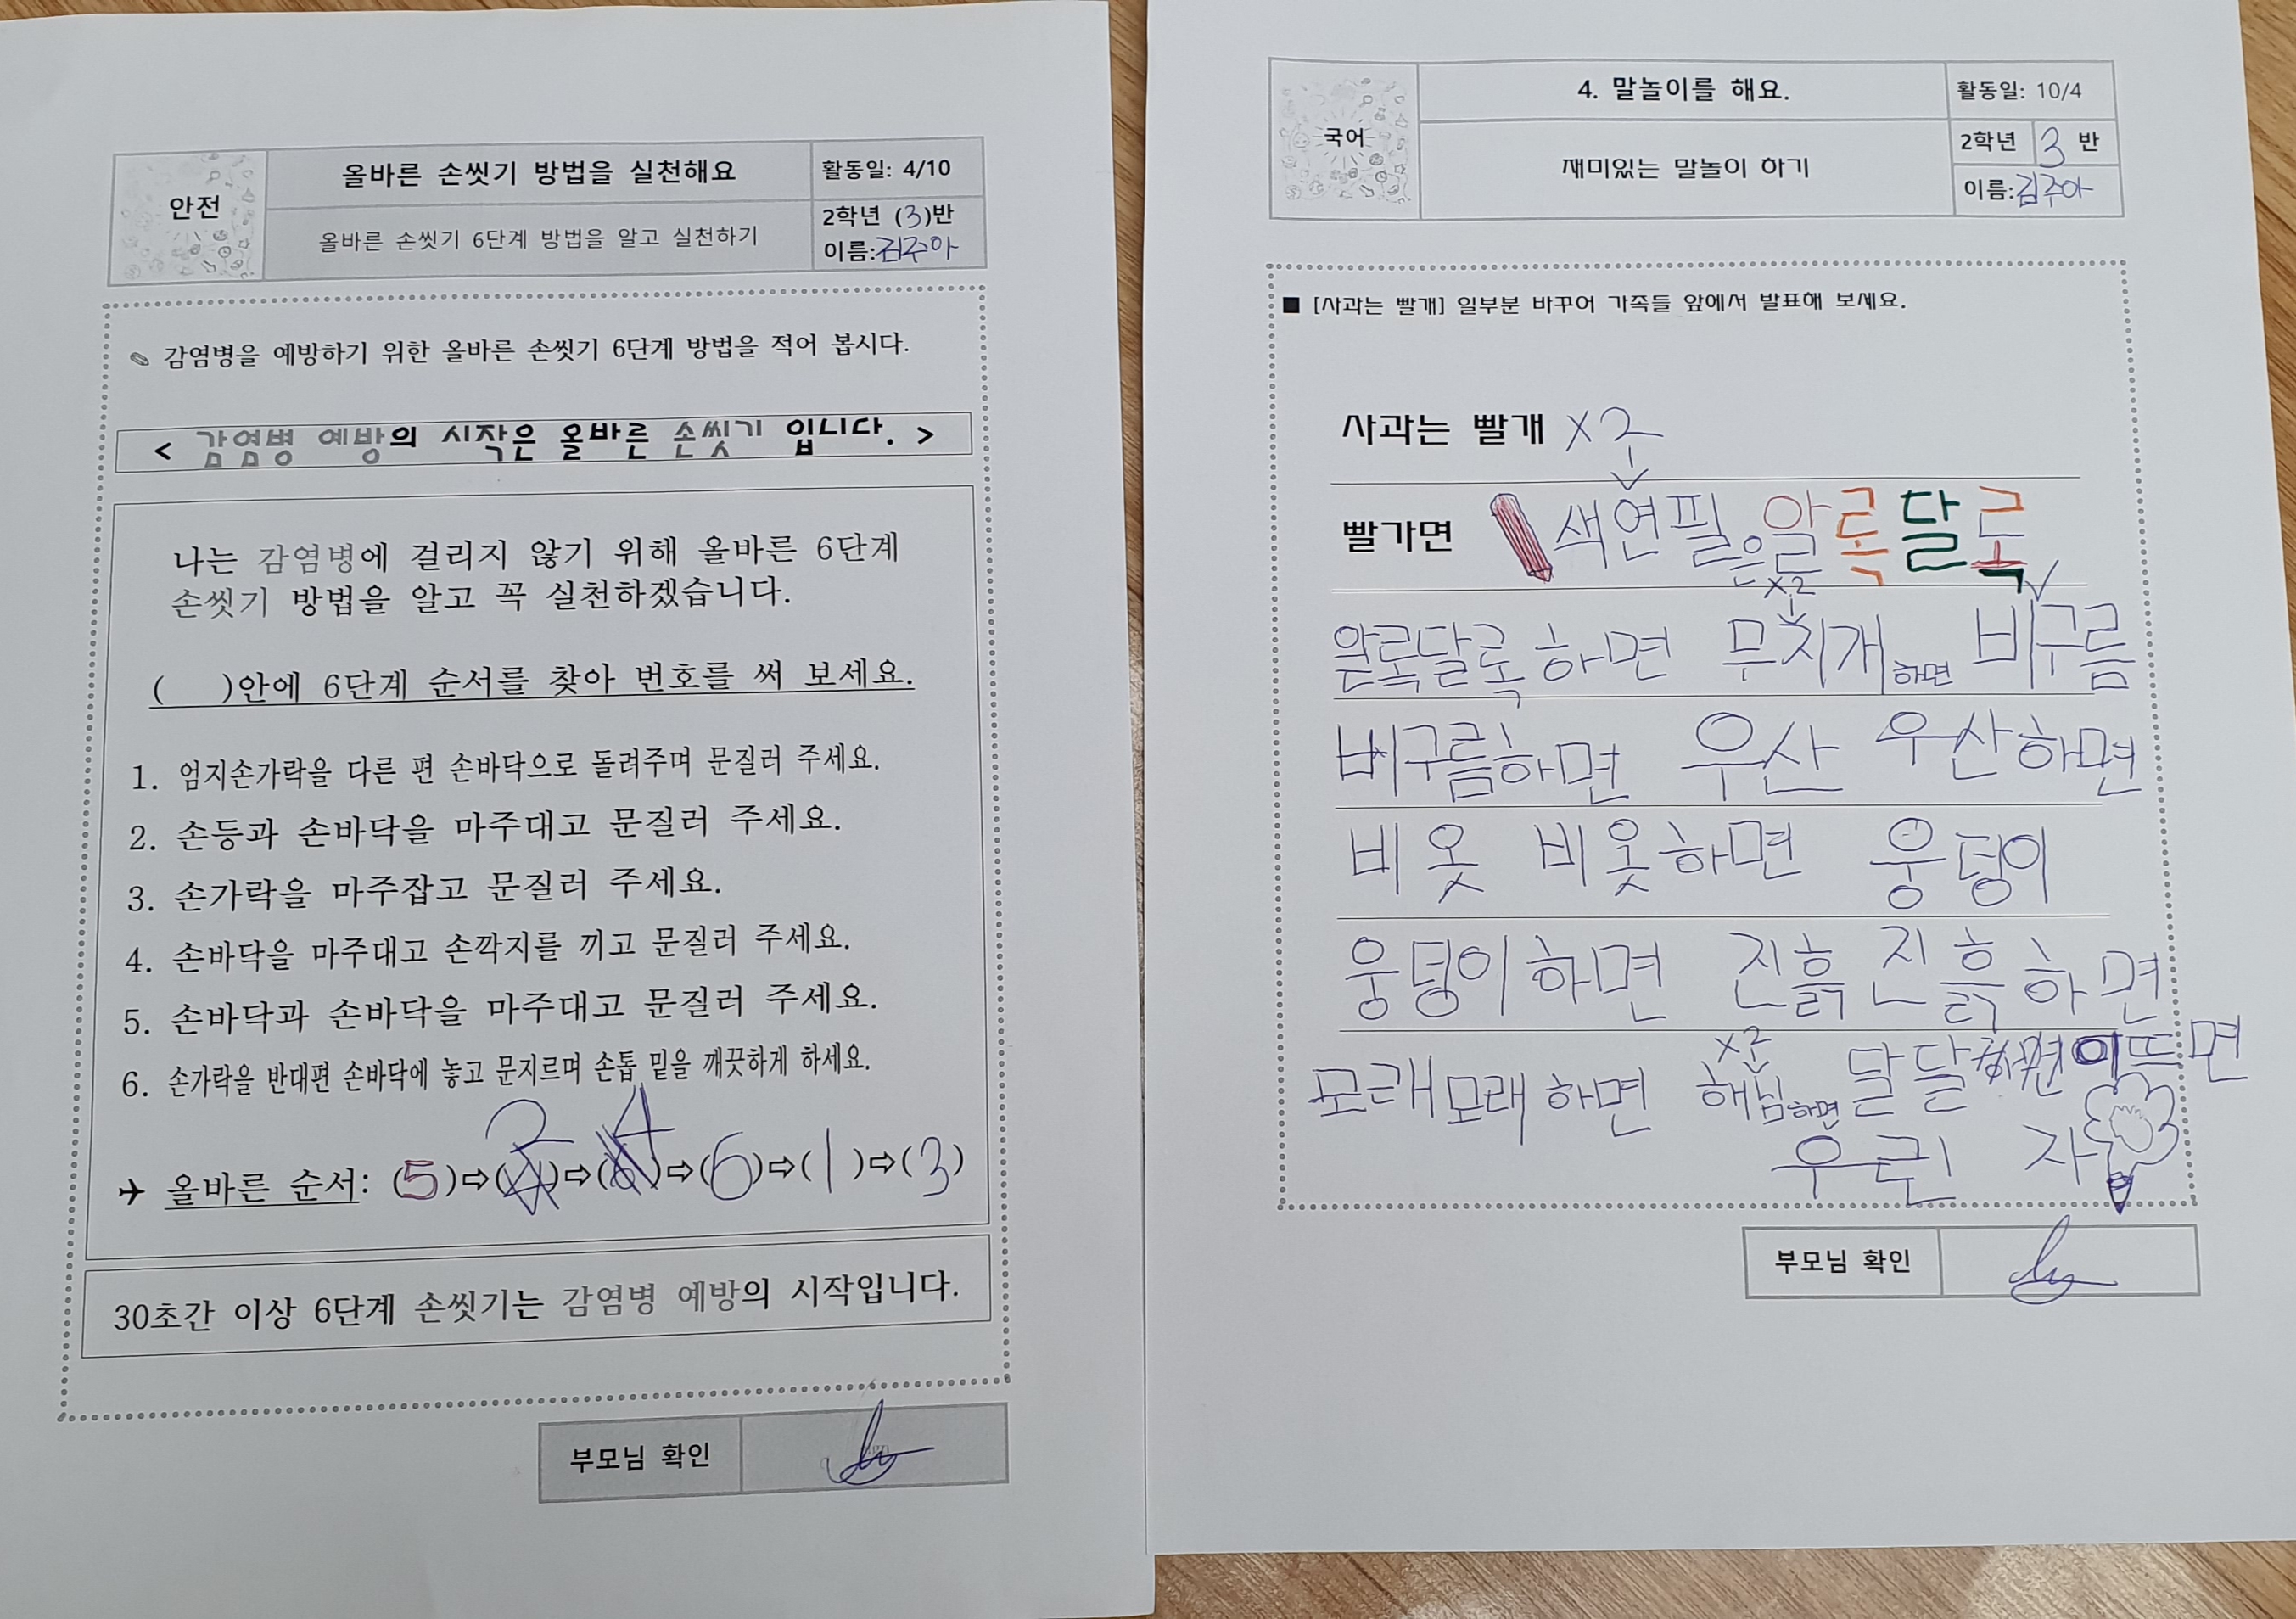 안전
올바른 손씻기 방법을 실천해요
활동일: 4/10
올바른 손씻기 6단계 방법을 알고 실천하기
2학년 (3)반
이름:김주아
감염병을 예방하기 위한 올바른 손씻기 6단계 방법을 적어 봅시다.
< 감염병 예방의 시작은 올바른 손씻기 입니다. >
나는 감염병에 걸리지 않기 위해 올바른 6단계
손씻기 방법을 알고 꼭 실천하겠습니다.
( )안에 6단계 순서를 찾아 번호를 써 보세요.
1. 엄지손가락을 다른 편 손바닥으로 돌려주며 문질러 주세요.
2. 손등과 손바닥을 마주대고 문질러 주세요.
3. 손가락을 마주잡고 문질러 주세요.
4. 손바닥을 마주대고 손깍지를 끼고 문질러 주세요.
5. 손바닥과 손바닥을 마주대고 문질러 주세요.
6. 손가락을 반대편 손바닥에 놓고 문지르며 손톱 밑을 깨끗하게 하세요.
2 4
✈ 올바른 순서: (5)⇨( )⇨( )⇨(6)⇨(1)⇨(3)
30초간 이상 6단계 손씻기는 감염병 예방의 시작입니다.
부모님 확인
국어
4. 말놀이를 해요.
활동일: 10/4
재미있는 말놀이 하기
2학년 3 반
이름:김주아
■ [사과는 빨개] 일부분 바꾸어 가족들 앞에서 발표해 보세요.
사과는 빨개 x2
빨가면 색연필은 알록달록
x2
알록달록하면 무지개하면 비구름
비구름하면 우산 우산하면
비옷 비옷하면 웅덩이
웅덩이하면 진흙 진흙하면
x2
모래모래하면 해님하면 달달 이뜨면
우린 자
부모님 확인